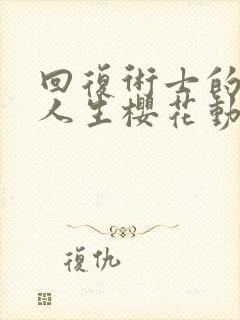 回復術士的
人生櫻花動
復仇